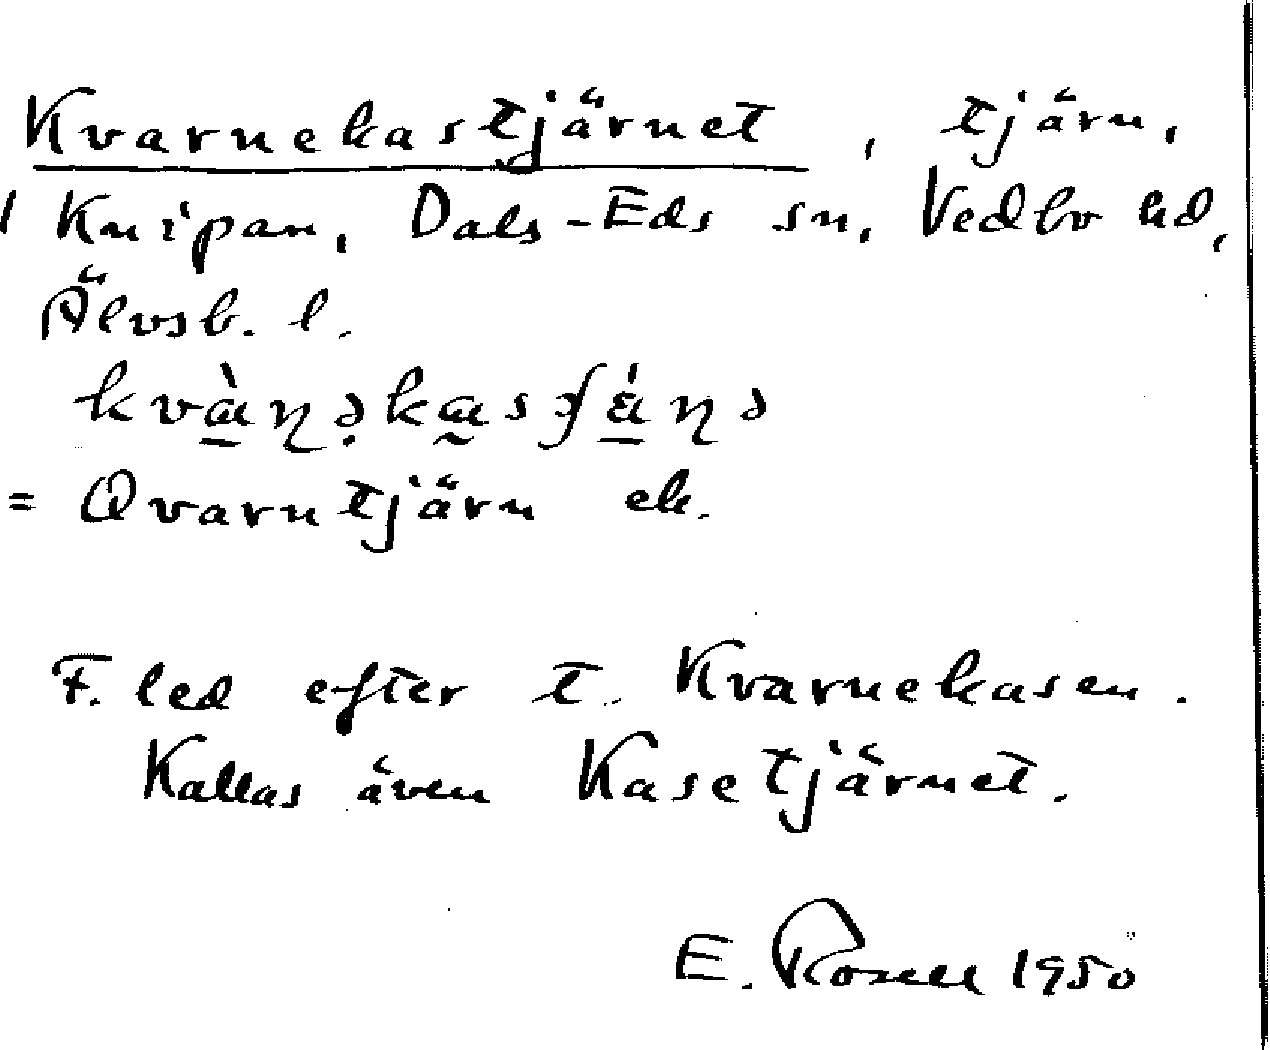 Kvarnekastjärnet, tjärn,
i Knipan, Dals-Eds sn, Vedbo hd,
Älvsb. l.
= Qvarntjärn ek.
F. led efter t. Kvarnekasen.
Kallas även Kasetjärnet.
E. Rosell 1950